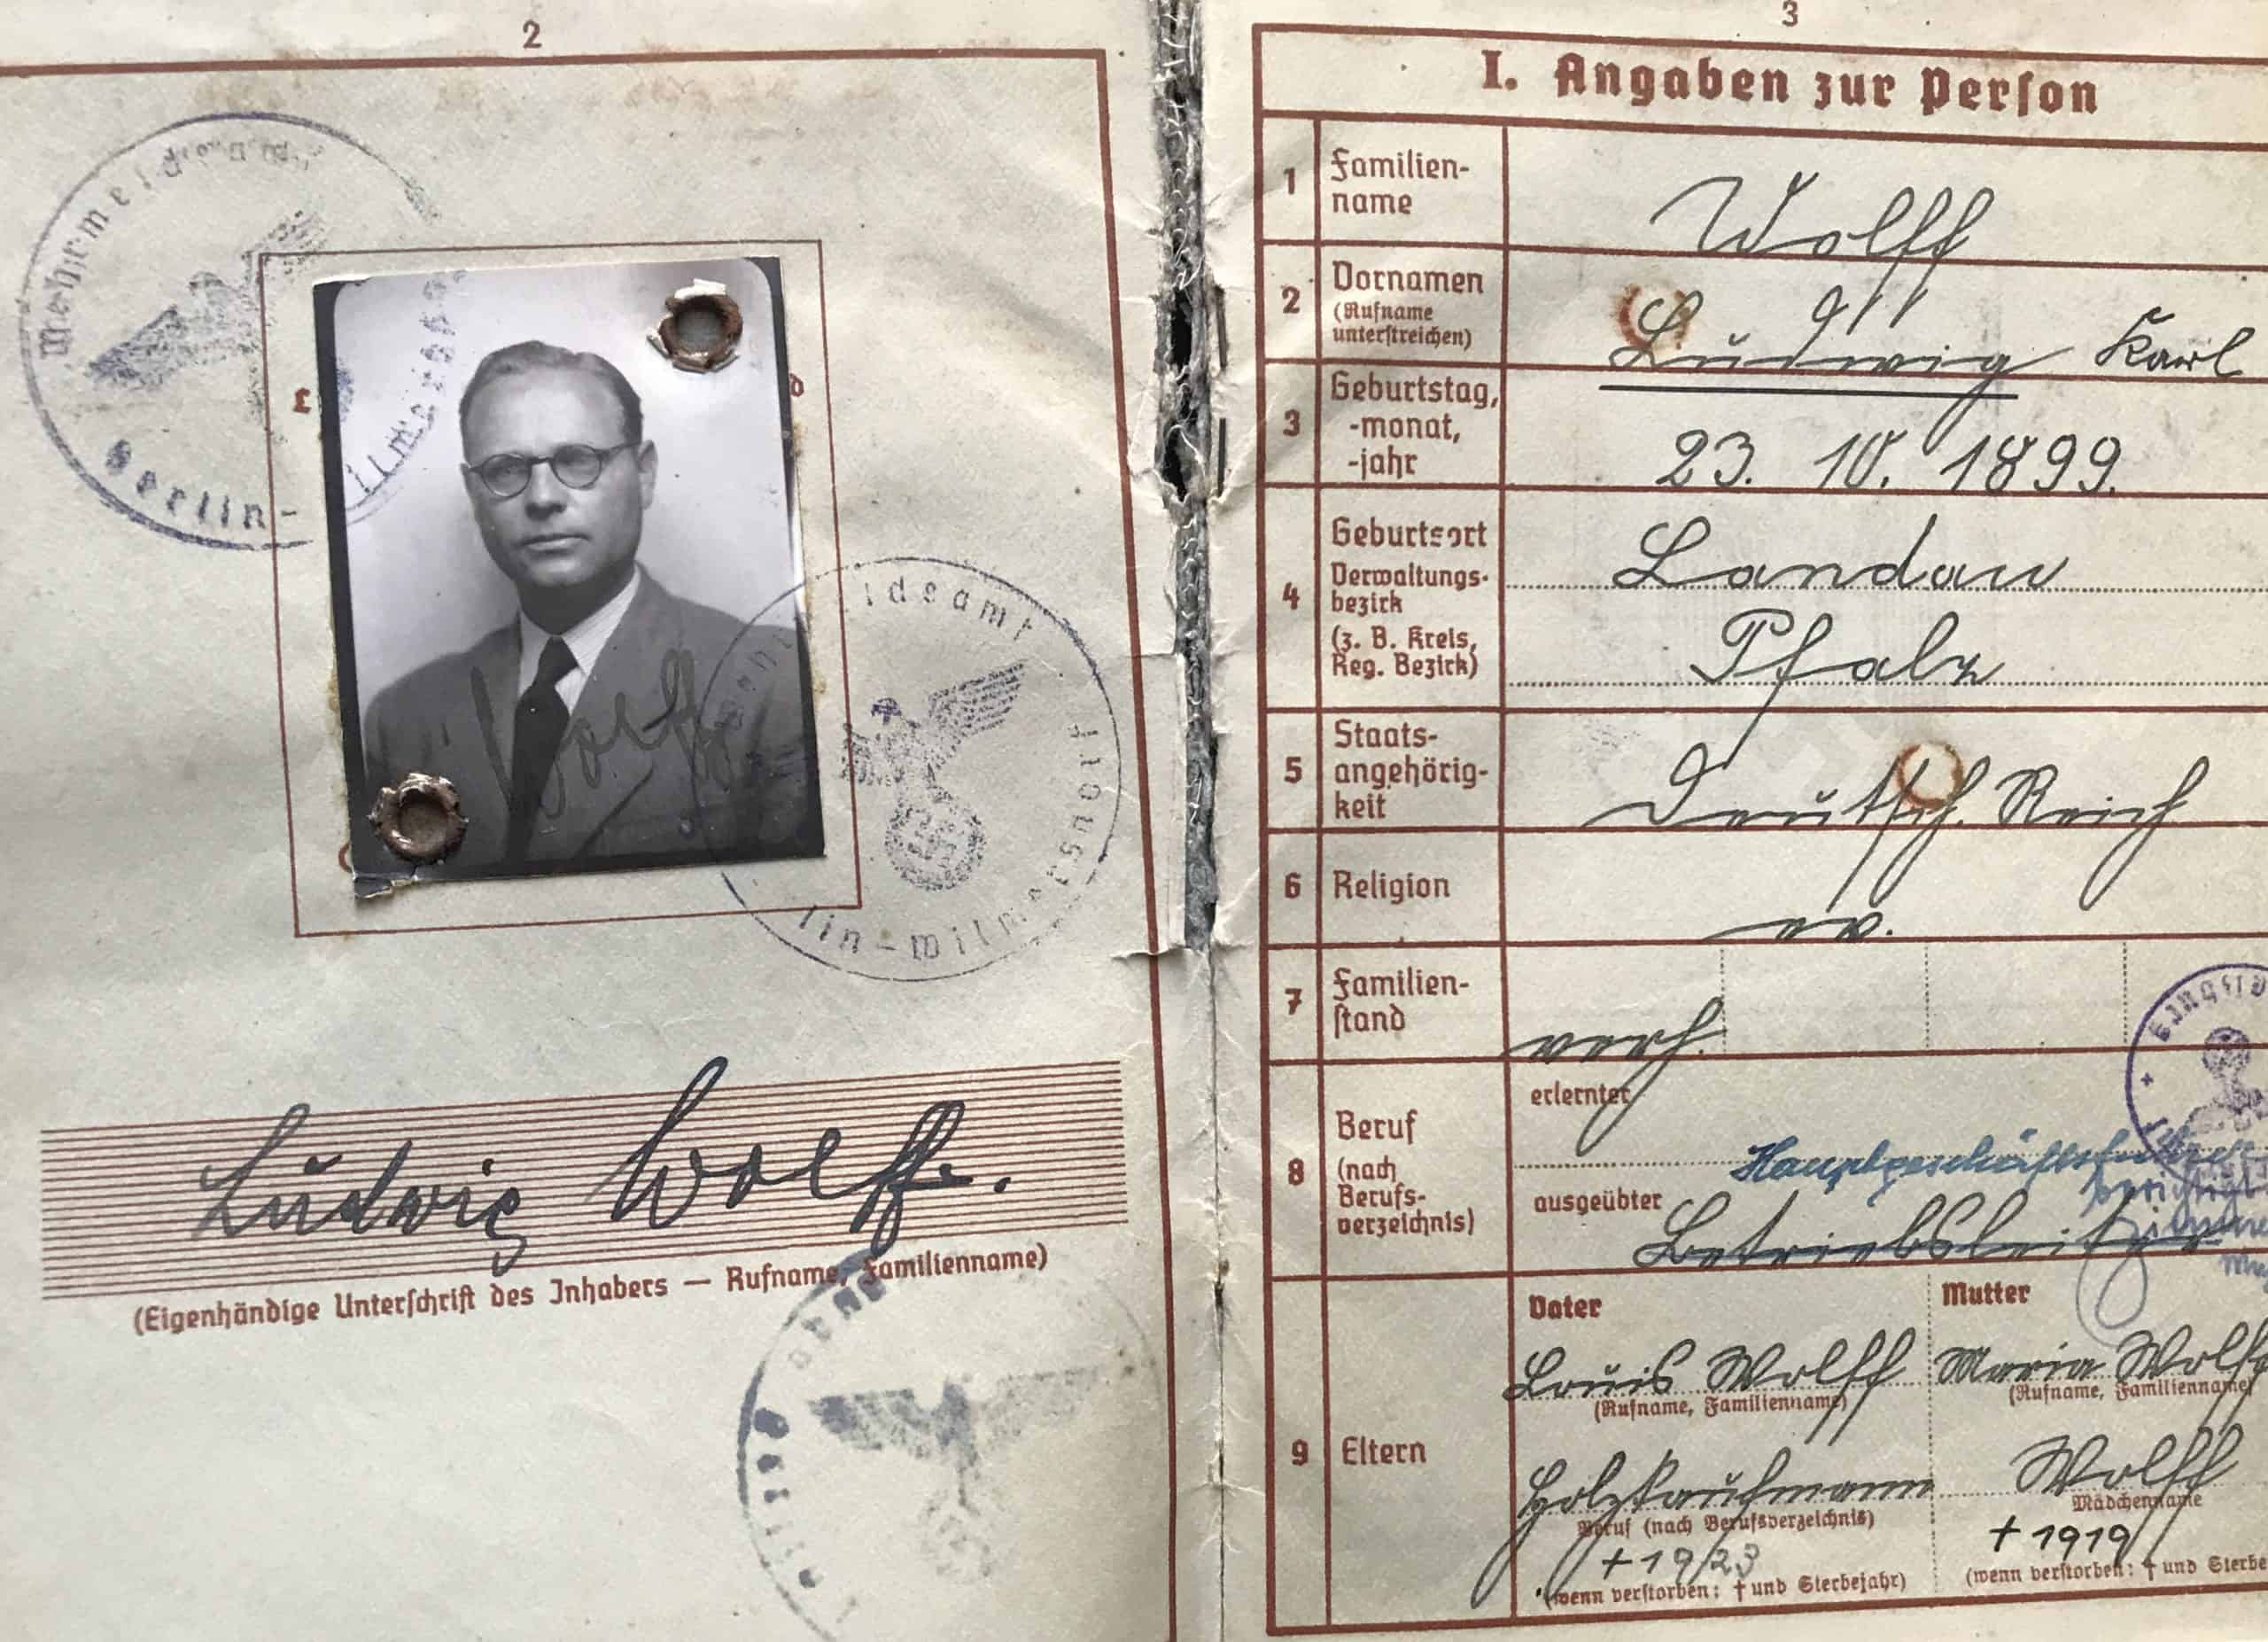 2
Wehrmeldeamt
Berlin-
ilmersdorf
L
d
Wolff
ldsamt
lin-Wilme
Ludwig Wolff.
(Eigenhändige Unterſchrift des Inhabers — Rufname, Familienname)
3
I. Angaben zur Perſon
1
Familien-
name
Wolff
2
Vornamen
(Rufname
unterſtreichen)
Ludwig Karl
3
Geburtstag,
-monat,
-jahr
23. 10. 1899.
4
Geburtsort
Verwaltungs-
bezirk
(z. B. Kreis,
Reg. Bezirk)
Landau
Pfalz
5
Staats-
angehörig-
keit
Deutsch. Reich
6
Religion
ev.
7
Familien-
ſtand
verh.
8
Beruf
(nach
Berufs-
verzeichnis)
erlernter
Hauptgeschäftsführer
ausgeübter
berichtigt
Betriebsleiter
9
Eltern
Vater
Louis Wolff
(Rufname, Familienname)
Holzkaufmann
Beruf (nach Berufsverzeichnis)
† 1923
(wenn verſtorben: † und Sterbejahr)
Mutter
Maria Wolff
(Rufname, Familienname)
Wolff
Mädchenname
† 1919
(wenn verſtorben: † und Sterbe